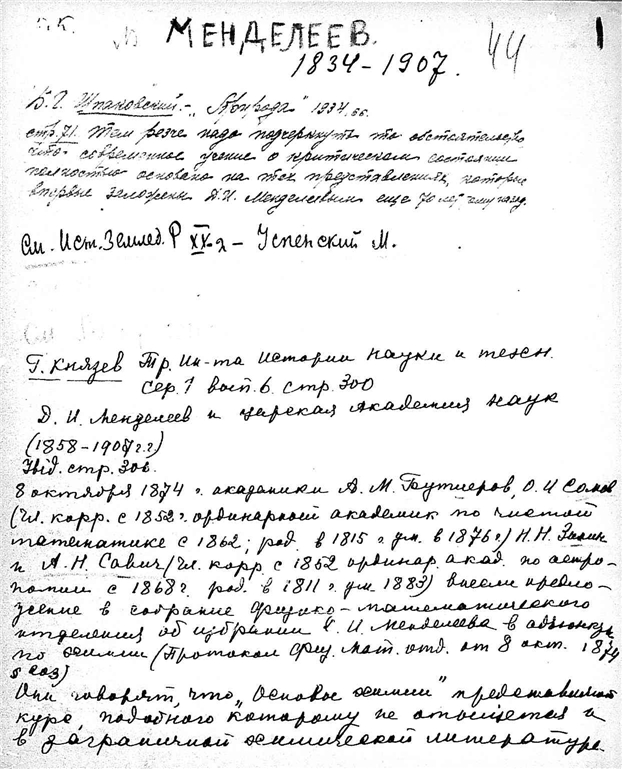 п.к. М МЕНДЕЛЕЕВ. 44 1
1834-1907.
Шпаковский. - „Природа" 1934, №6.
стр. 71. Тем резче надо подчеркнуть то обстоятельство
что современное учение о критическом состоянии
полностью основано на тех представлениях, которые
впервые заложены Д.И. Менделеевым еще 70 лет тому назад.
См. Ист. Землед. Р XX-2 - Успенский М.
Г. Князев Тр. Ин-та Истории науки и техн.
сер. 1 вып. 6. стр. 300
Д. И. Менделеев и царская Академия наук
(1858-1907 г.г)
Ibid. стр. 306.
8 октября 1874 г. академики А. М. Бутлеров, О. И Сомов
(чл. корр. с 1852 г. ординарный академик по чистой
математике с 1862; род. в 1815 г ум. в 1876 г) Н.Н. Зинин
и А. Н. Савич (чл. корр с 1852 ординар. акад. по астро-
номии с 1868 г. род. в 1811 г ум 1883) внесли предло-
жение в собрание физико-математического
отделения об избрании И. Менделеева в адъюнкты
по химии (Протокол физ. мат. отд. от 8 окт. 1874
Они говорят, что „Основы химии" представляют
курс, подобного которому не отыщется и
в заграничной химической литературе